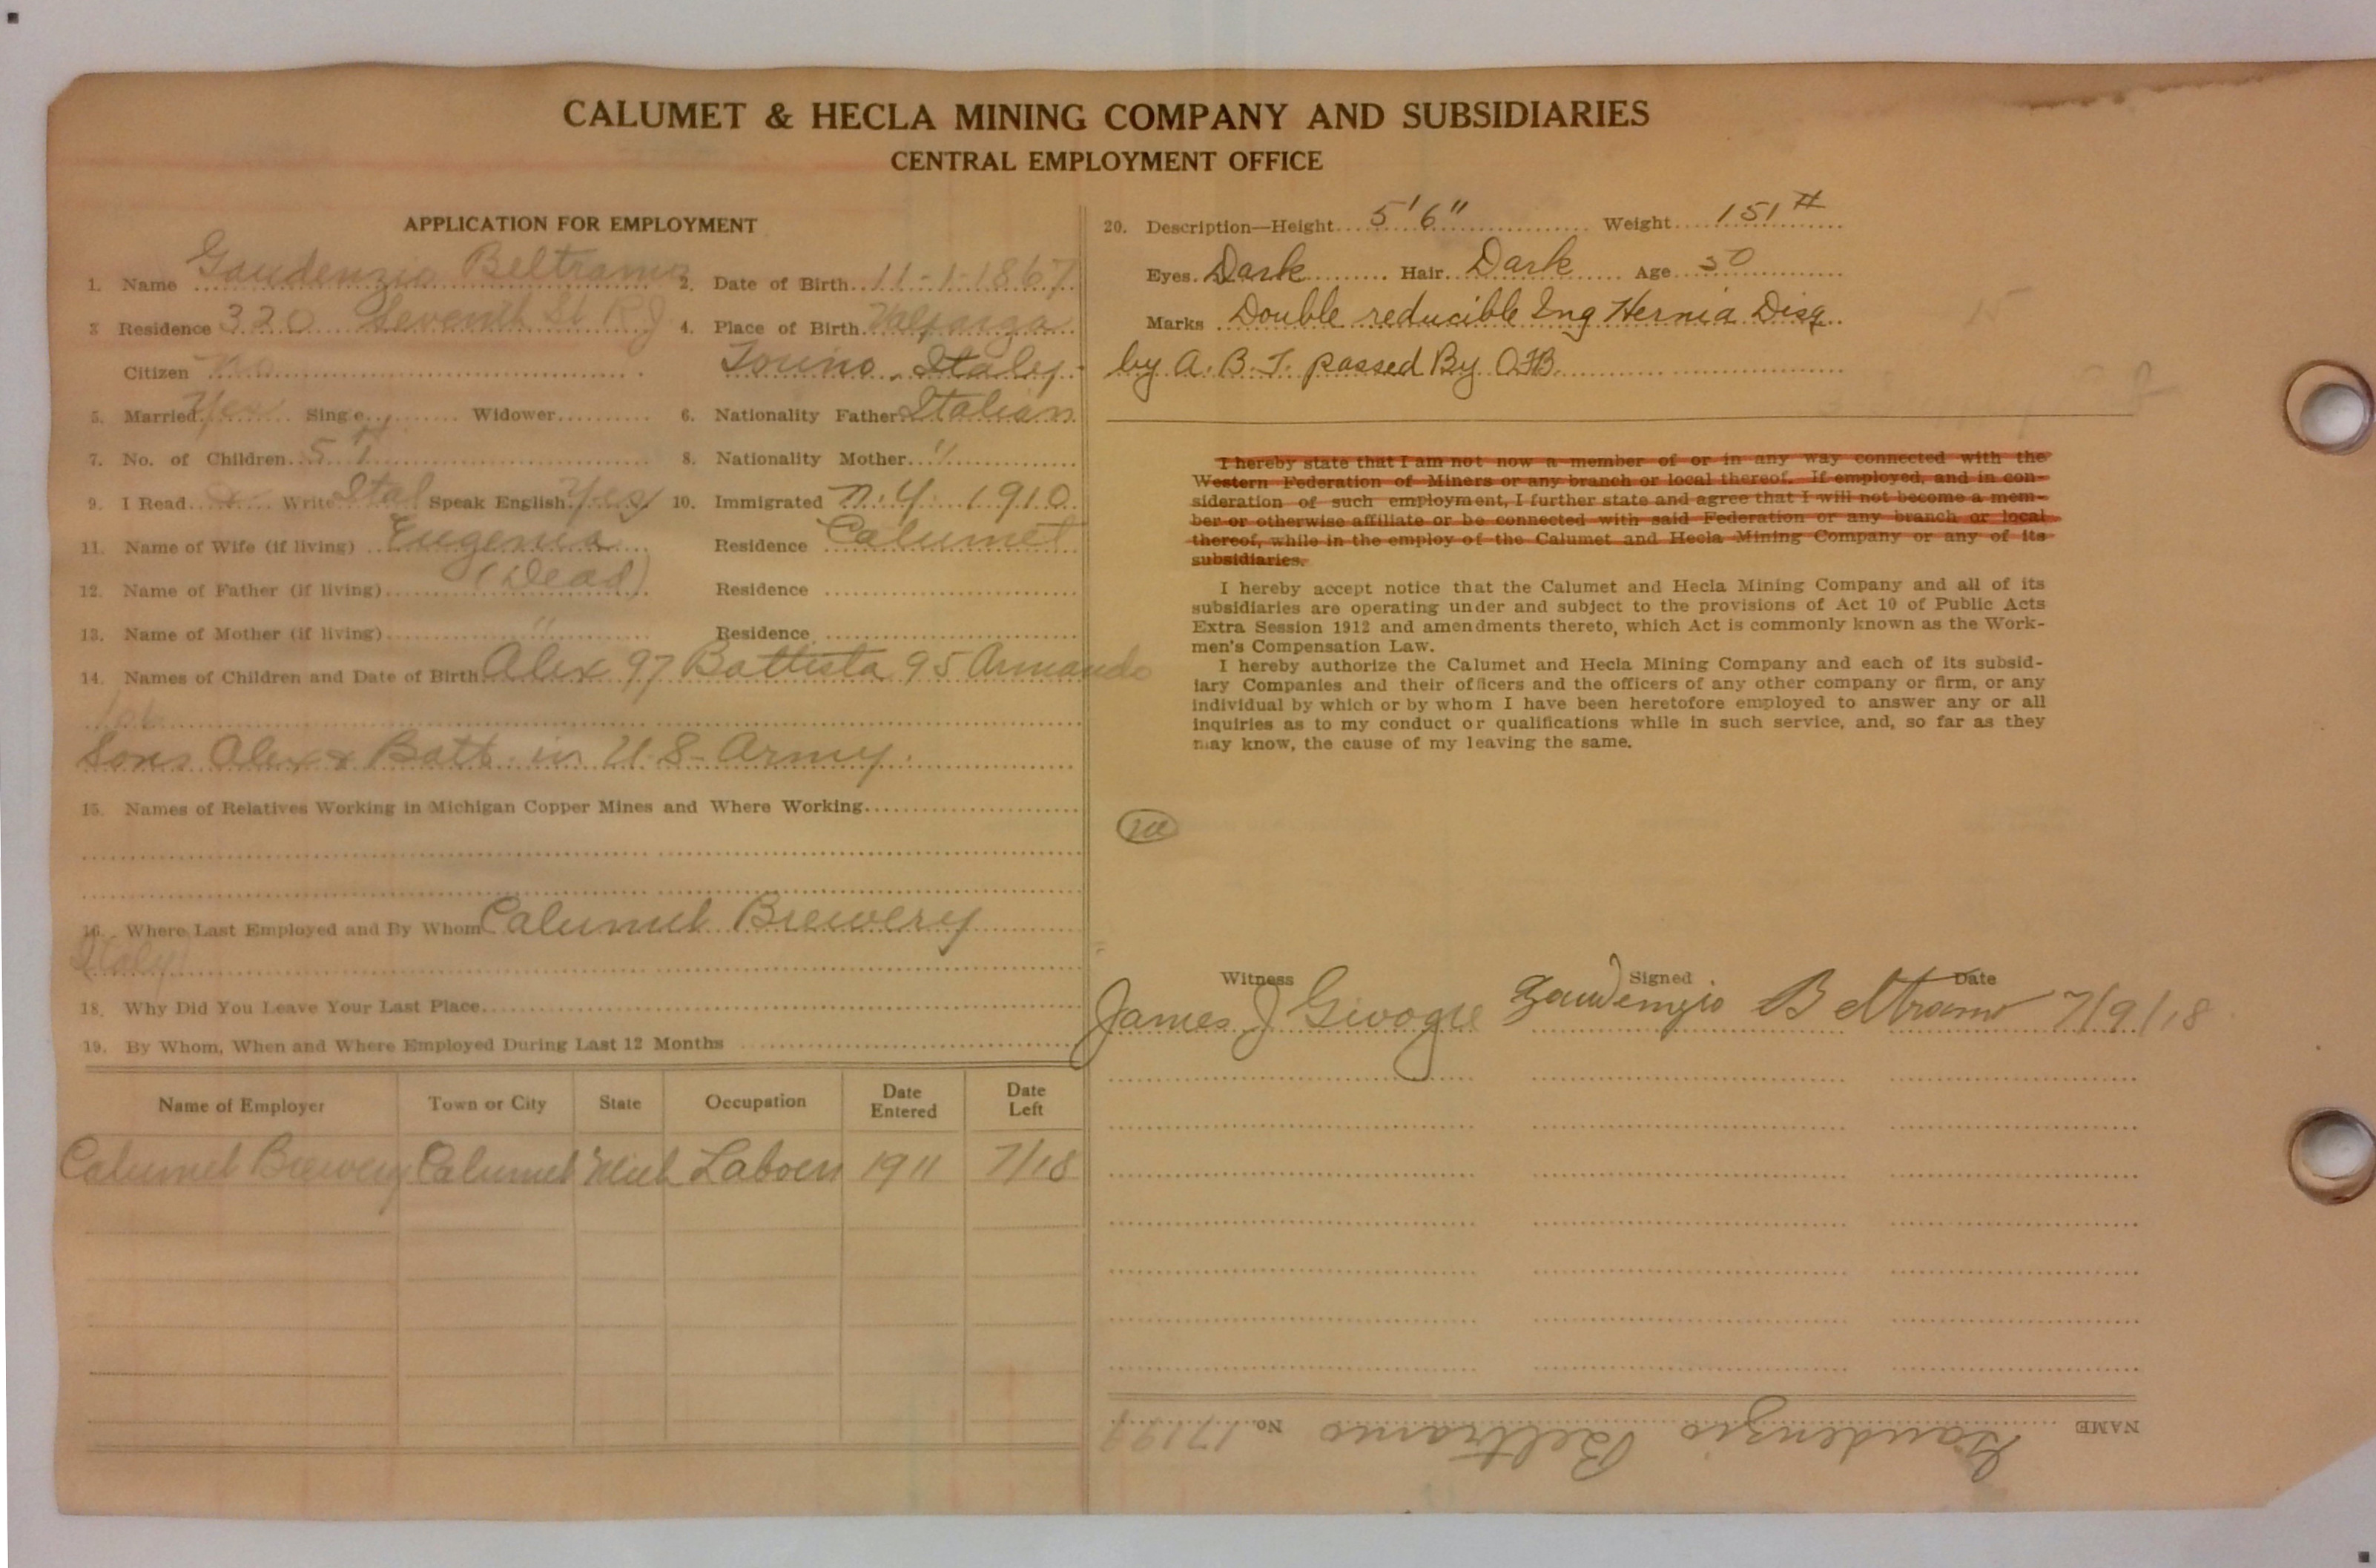 CALUMET & HECLA MINING COMPANY AND SUBSIDIARIES
CENTRAL EMPLOYMENT OFFICE
APPLICATION FOR EMPLOYMENT
1. Name Gaudenzio Beltramo 2. Date of Birth 11-1-1867
3 Residence 320 Seventh St R.J. 4. Place of Birth Valperga
Citizen no Torino. Italy.
5. Married Yes Single Widower 6. Nationality Father Italian
7. No. of Children 5 8. Nationality Mother "
9. I Read & Write Ital Speak English Yes 10. Immigrated N.Y. 1910
11. Name of Wife (if living) Eugenia Residence Calumet
12. Name of Father (if living) (Dead) Residence
13. Name of Mother (if living) " Residence
14. Names of Children and Date of Birth Alex 97 Battista 95 Armando
Sons Alex & Batt. in U.S. Army.
15. Names of Relatives Working in Michigan Copper Mines and Where Working
16. Where Last Employed and By Whom Calumet Brewery
Italy
18. Why Did You Leave Your Last Place
19. By Whom, When and Where Employed During Last 12 Months
Name of Employer Town or City State Occupation Date Entered Date Left
Calumet Brewery Calumet Mich Laborer 1911 7/18
20. Description—Height 5'6" Weight 151#
Eyes Dark Hair Dark Age 50
Marks Double reducible Ing Hernia Disq.
by A.B.T. passed By
15
I hereby state that I am not now a member of or in any way connected with the
Western Federation of Miners or any branch or local thereof. If employed, and in con-
sideration of such employment, I further state and agree that I will not become a mem-
ber or otherwise affiliate or be connected with said Federation or any branch or local
thereof, while in the employ of the Calumet and Hecla Mining Company or any of its
subsidiaries.
I hereby accept notice that the Calumet and Hecla Mining Company and all of its
subsidiaries are operating under and subject to the provisions of Act 10 of Public Acts
Extra Session 1912 and amendments thereto, which Act is commonly known as the Work-
men's Compensation Law.
I hereby authorize the Calumet and Hecla Mining Company and each of its subsid-
iary Companies and their officers and the officers of any other company or firm, or any
individual by which or by whom I have been heretofore employed to answer any or all
inquiries as to my conduct or qualifications while in such service, and, so far as they
may know, the cause of my leaving the same.
Witness Signed Date
James J Givogre Gaudenzio Beltramo 7/9/18
NAME Gaudenzio Beltramo No. 17199